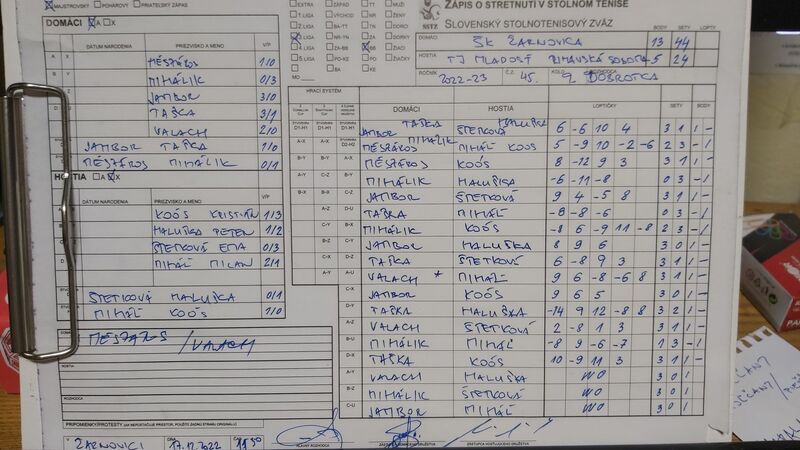 MAJSTROVSKÝ POHÁR PRIATEĽSKÝ ZÁPAS
DOMÁCI A X
DÁTUM NARODENIA PRIEZVISKO A MENO V/P
MÉSZÁROS 1/0
MIHÁLIK 0/3
JAMBOR 3/0
TAŠKA 3/1
VALACH 2/0
JAMBOR TAŠKA 1/0
MÉSZÁROS MIHÁLIK 0/1
HOSTIA A X
DÁTUM NARODENIA PRIEZVISKO A MENO V/P
KOÓS KRISTIÁN 1/3
HALUŠKA PETER 1/2
ŠTETKOVÁ EMA 0/3
MIHÁĽ MILAN 2/1
ŠTETKOVÁ HALUŠKA 0/1
MIHÁĽ KOÓS 1/0
MÉSZÁROS /VALACH
HOSTIA
ROZHODCA
PRIPOMIENKY/PROTESTY
V ŽARNOVICI DŇA 17.12.2022
HLAVNÝ ROZHODCA
ZÁSTUPCA HOSŤUJÚCEHO DRUŽSTVA
EXTRA TT MUŽI
1. LIGA VÝCHOD NR ŽENY
2. LIGA
3. LIGA NR-TN ZA DORKY
4. LIGA ZA-BB BB ŽIACI
5. LIGA PO-KE PO ŽIAČKY
BA KE
MO
ZÁPIS O STRETNUTÍ V STOLNOM TENISE
SSTZ SLOVENSKÝ STOLNOTENISOVÝ ZVÄZ
BODY SETY LOPTY
DOMÁCI ŠK ŽARNOVICA 13 44
HOSTIA TJ MLADOSŤ RIMAVSKÁ SOBOTA 5 24
ROČNÍK 2022-23 Č.Z. 45. KOLO 9 ROZHODCA DOBROTKA
HRACÍ SYSTÉM
DOMÁCI HOSTIA LOPTIČKY SETY BODY
JAMBOR TAŠKA ŠTETKOVÁ HALUŠKA 6 -6 10 4 3 1 1 -
MÉSZÁROS MIHÁLIK MIHÁĽ KOÓS 5 -9 10 -2 -6 2 3 - 1
MÉSZÁROS KOÓS 8 -12 9 3 3 1 1 -
MIHÁLIK HALUŠKA -6 -11 -8 0 3 - 1
JAMBOR ŠTETKOVÁ 9 4 -5 8 3 1 1 -
TAŠKA MIHÁĽ -8 -8 -6 0 3 - 1
MIHÁLIK KOÓS -8 6 -9 11 -8 2 3 - 1
JAMBOR HALUŠKA 8 9 6 3 0 1 -
TAŠKA ŠTETKOVÁ 6 -8 9 3 3 1 1 -
VALACH * MIHÁĽ 9 6 -8 -6 8 3 1 1
JAMBOR KOÓS 9 6 5 3 0 1 -
TAŠKA HALUŠKA -14 9 12 -8 8 3 2 1 -
VALACH ŠTETKOVÁ 2 -8 1 3 3 1 1 -
MIHÁLIK MIHÁĽ -8 9 -6 -7 1 3 - 1
TAŠKA KOÓS 10 -9 11 3 3 1 1 -
VALACH HALUŠKA WO 3 0 1 -
MIHÁLIK ŠTETKOVÁ WO 3 0 1 -
JAMBOR MIHÁĽ WO 3 0 1 -